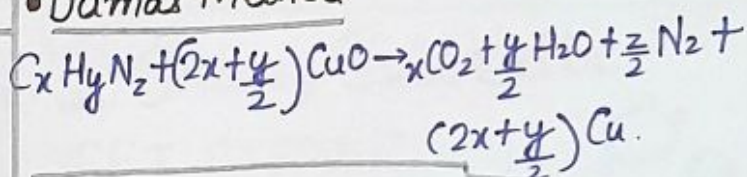 •Dumas
CxHyNz+(2x+y/2)CuO→xCO2+y/2 H2O+z/2 N2+
(2x+y/2)Cu.